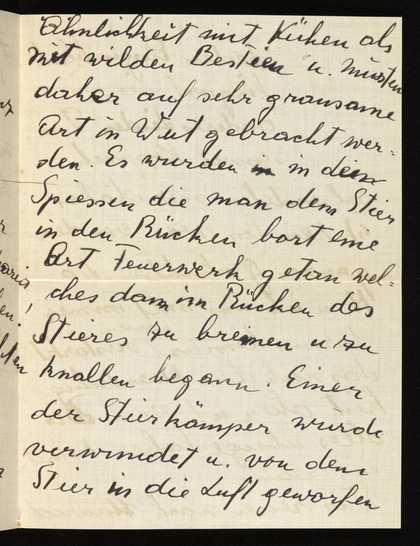 Ähnlichkeit mit Kühen als
mit wilden Bestien u. mussten
daher auf sehr grausame
Art in Wut gebracht wer-
den. Es wurden in den
Spiessen die man dem Stier
in den Rücken bort eine
Art Feuerwerk getan wel-
ches dann im Rücken des
Stieres zu brennen u zu
knallen begann. Einer
der Stierkämper wurde
verwundet u. von dem
Stier in die Luft geworfen